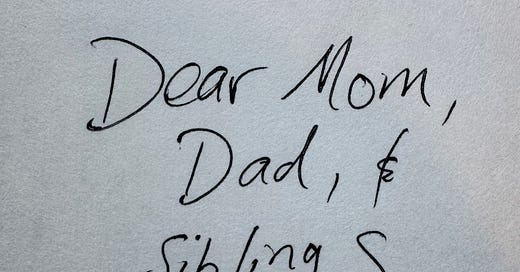 Dear Mom,
Dad, &
Siblings